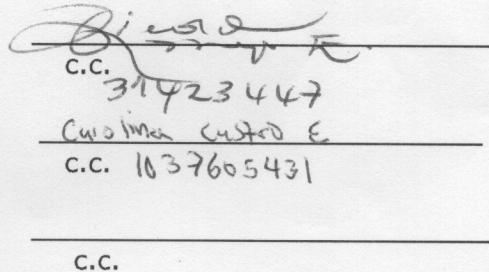 C.C.
31423447
Carolina Castro E
C.C. 1037605431
C.C.